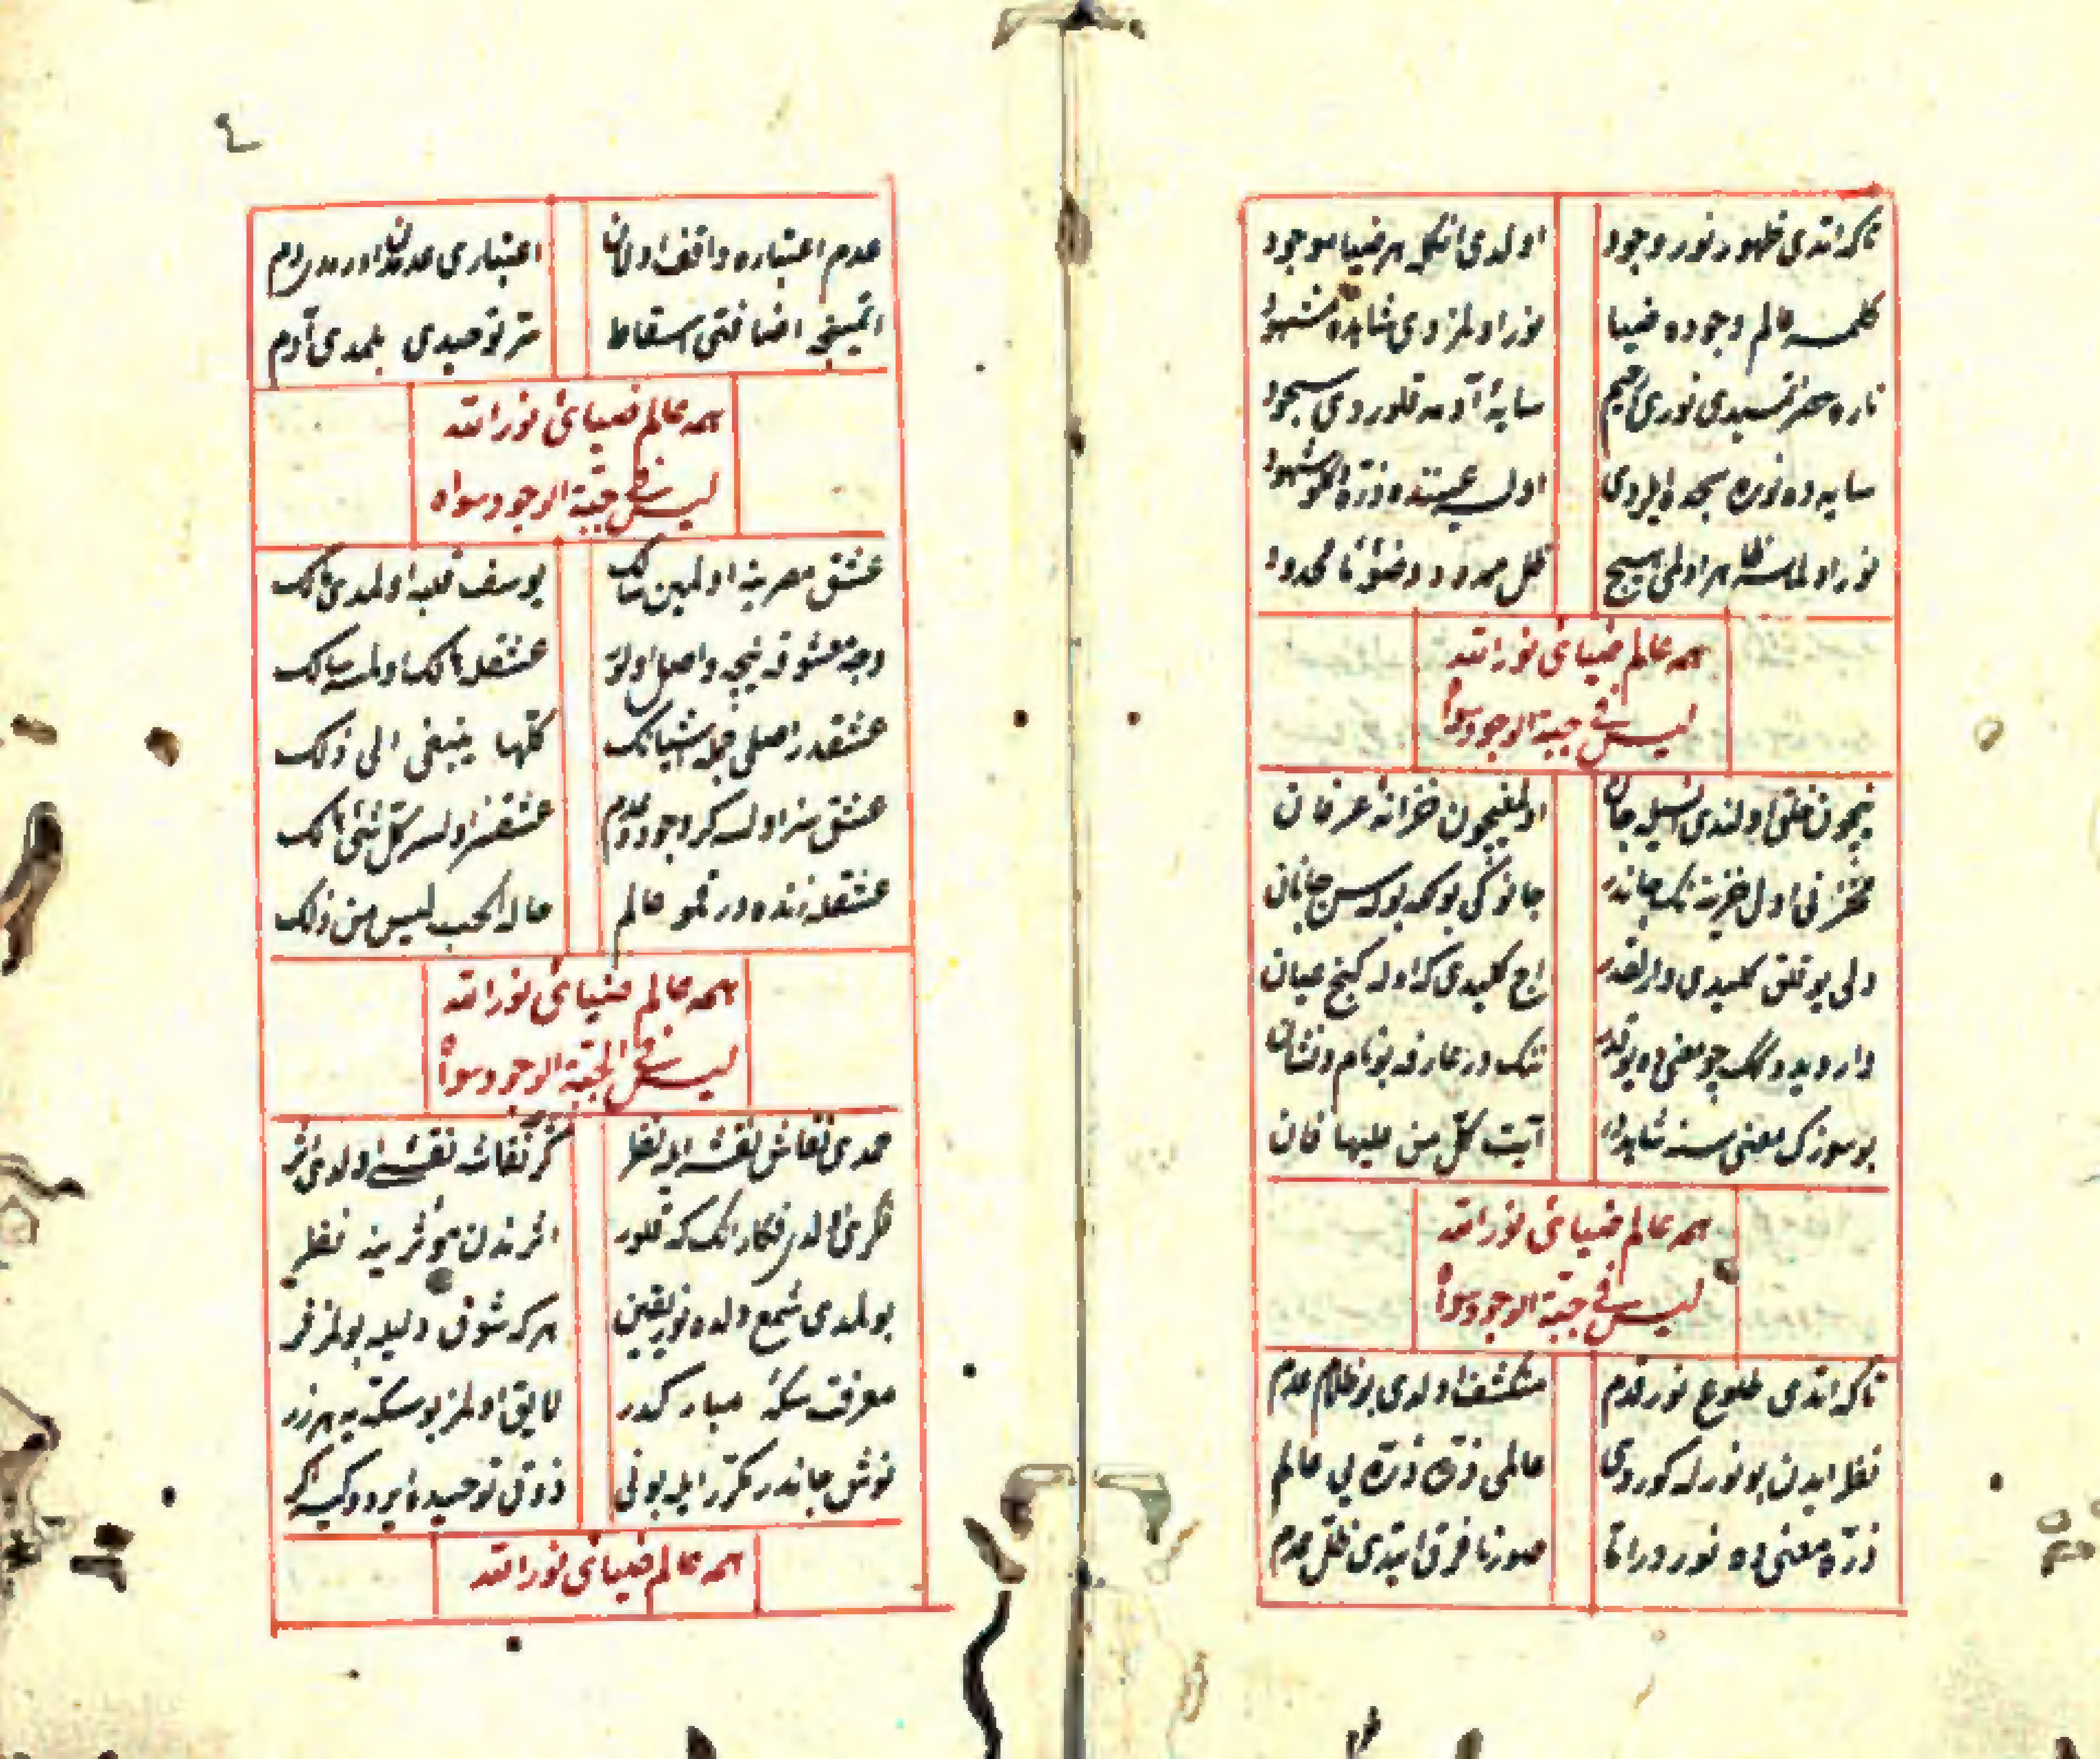 تاکه اتدی ظهور نور وجود
اولدی انکله هر ضیا موجود
کلمسه عالم وجوده ضیا
نور اولمزدی شاهده مشهود
سایهٔ آدمه قلوردی سجود
سایه ده نوره سجده ایلردی
نور اولماسه ظاهر اولمز هیچ
ظل ممدود وضوء نا محدود
همه عالم ضیای نور الله
لیس فی جبة الوجود سواه
نیچون خلق اولندی انسیله جان
اولمغیچون خزانهٔ عرفان
مخزنی اول خزینه نک جاندر
دلی بو قلق کلیدی دل
اچ کلیدی که اوله کنج عیان
وار دیدوکک چو معنی ده یوقدر
تنک در عارفه بو نام ونشان
بو سوزک معنی سنه شاهددر
آیت کل من علیها فان
همه عالم ضیای نور الله
لیس فی جبة الوجود سواه
تاکه اتدی طلوع نور قدم
منکشف اولدی بو ظلام عدم
نظر ایدن بو نورله کوردی
عالمی ذره ذره بی عالم
ذره معنی ده نور در اما
صورتا فرق ایتدی ظل عدم
٤
عدم اعتباره واقف اولان
اعتباری عدمدن اورمدی دم
ایتمینجه اضافتی اسقاط
سر توحیدی بلمدی آدم
همه عالم ضیای نور الله
لیس فی جبة الوجود سواه
عشق مصرینه اولمین سالک
یوسف قلبه اولمدی مالک
وجه معشوقه نیجه واصل اولور
عشقله مالک اولمسه سالک
عشقدر اصلی جمله اشیانک
کلها ینبغی الی ذلک
عشق سز اولسه کر وجود وعدم
عشقسز اولسه کل شیء هالک
عشقله زنده در قمو عالم
حالة الحب لیس من ذلک
همه عالم ضیای نور الله
لیس فی الجبة الوجود سواه
قمدی نقاش نقشه ایله نظر
کر نقاشه نقشی اولدی اثر
فکرنی الدر فکارانک که قلور
اثرندن مؤثرینه نظر
بولمدی شمع دلده نور یقین
هر که شوق دلیله بولمز فر
معرفت سکهٔ مبارکدر
لایق اولمز بو سکه یه هر زر
نوش جاندر مکرر ایله بونی
ذوق توحیده ایردوکسه اکر
همه عالم ضیای نور الله